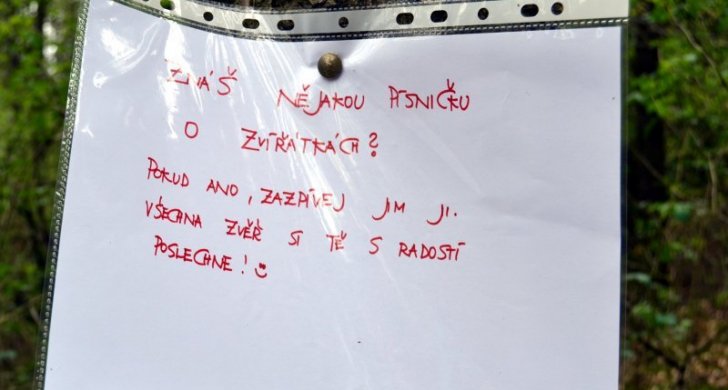 ZNÁŠ NĚJAKOU PÍSNIČKU
O ZVÍŘÁTKÁCH?
POKUD ANO, ZAZPÍVEJ JIM JI.
VŠECHNA ZVĚŘ SI TĚ S RADOSTÍ
POSLECHNE!